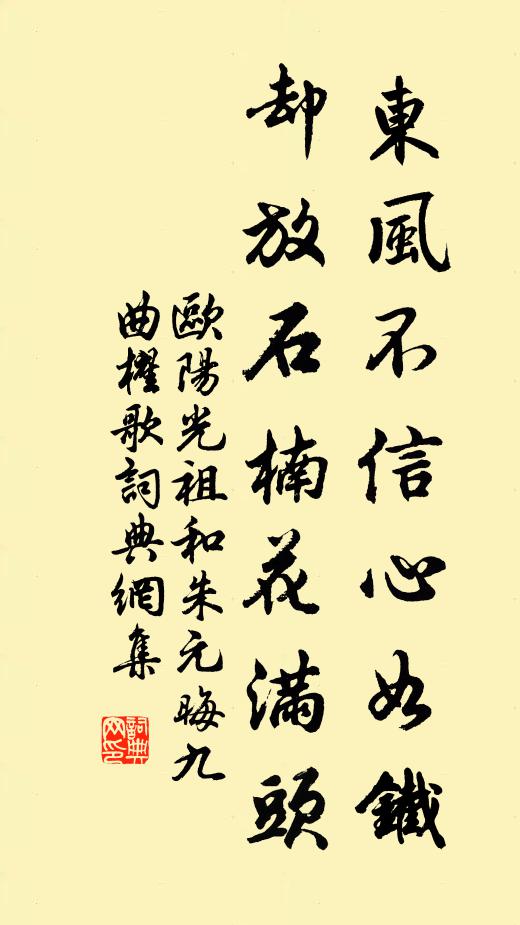 東風不信心如鐵
却放石楠花滿頭
歐陽光祖和朱元晦九
曲櫂歌詞典網集
詞典
网印